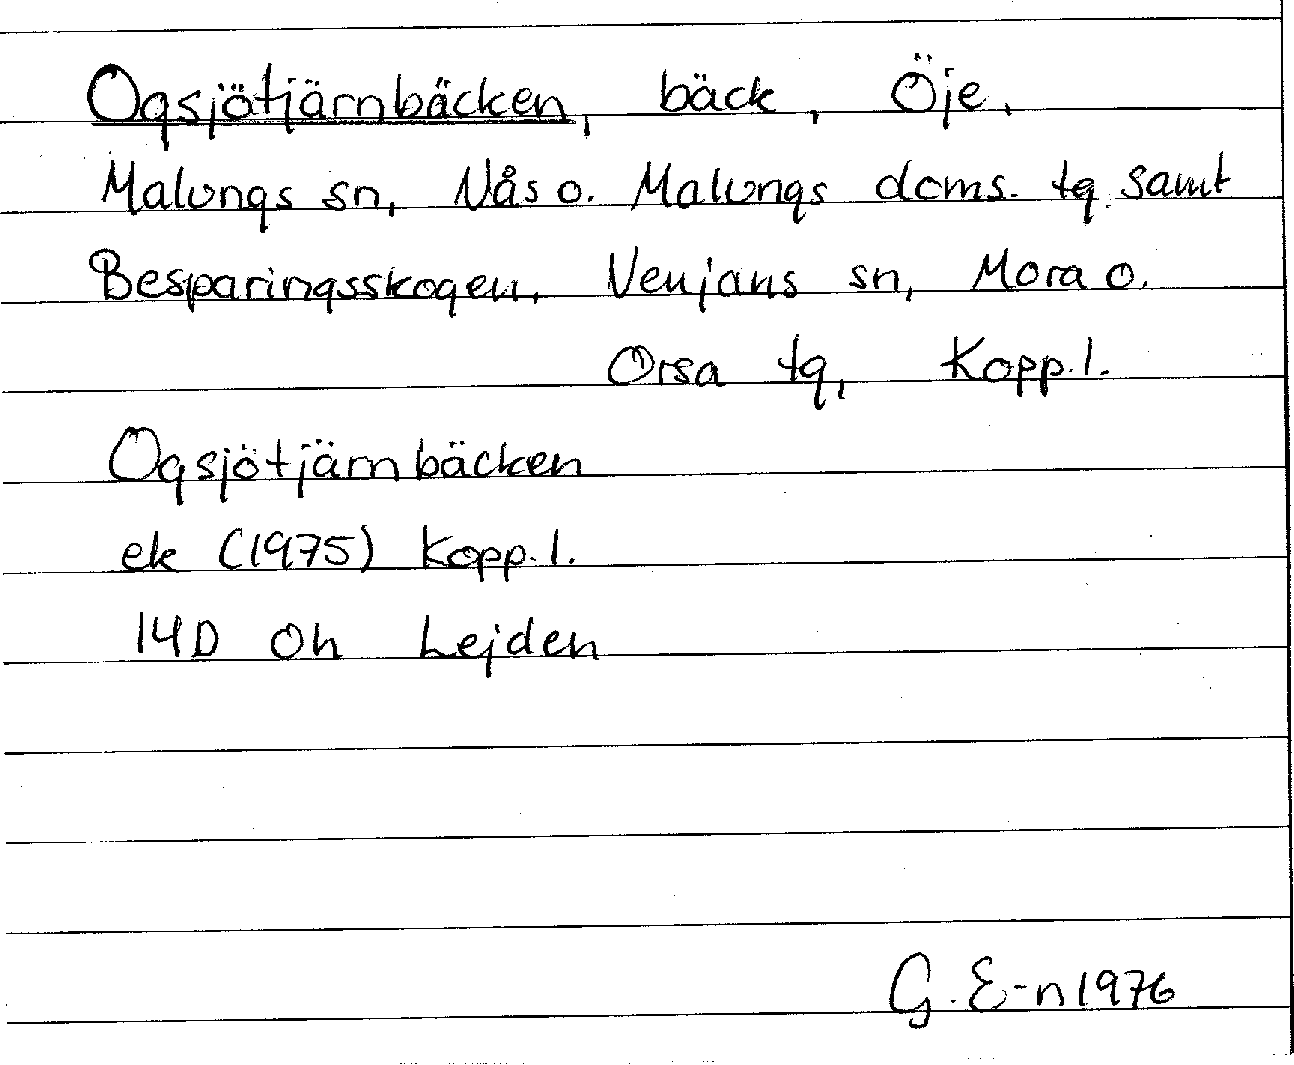 Ogsjötjärnbäcken, bäck, Öje,
Malungs sn, Nås o. Malungs dcms. tg samt
Besparingsskogen, Venjans sn, Mora o.
Orsa tg, Kopp.l.
Ogsjötjärnbäcken
ek (1975) Kopp.l.
14D 0h Lejden
G. E-n 1976